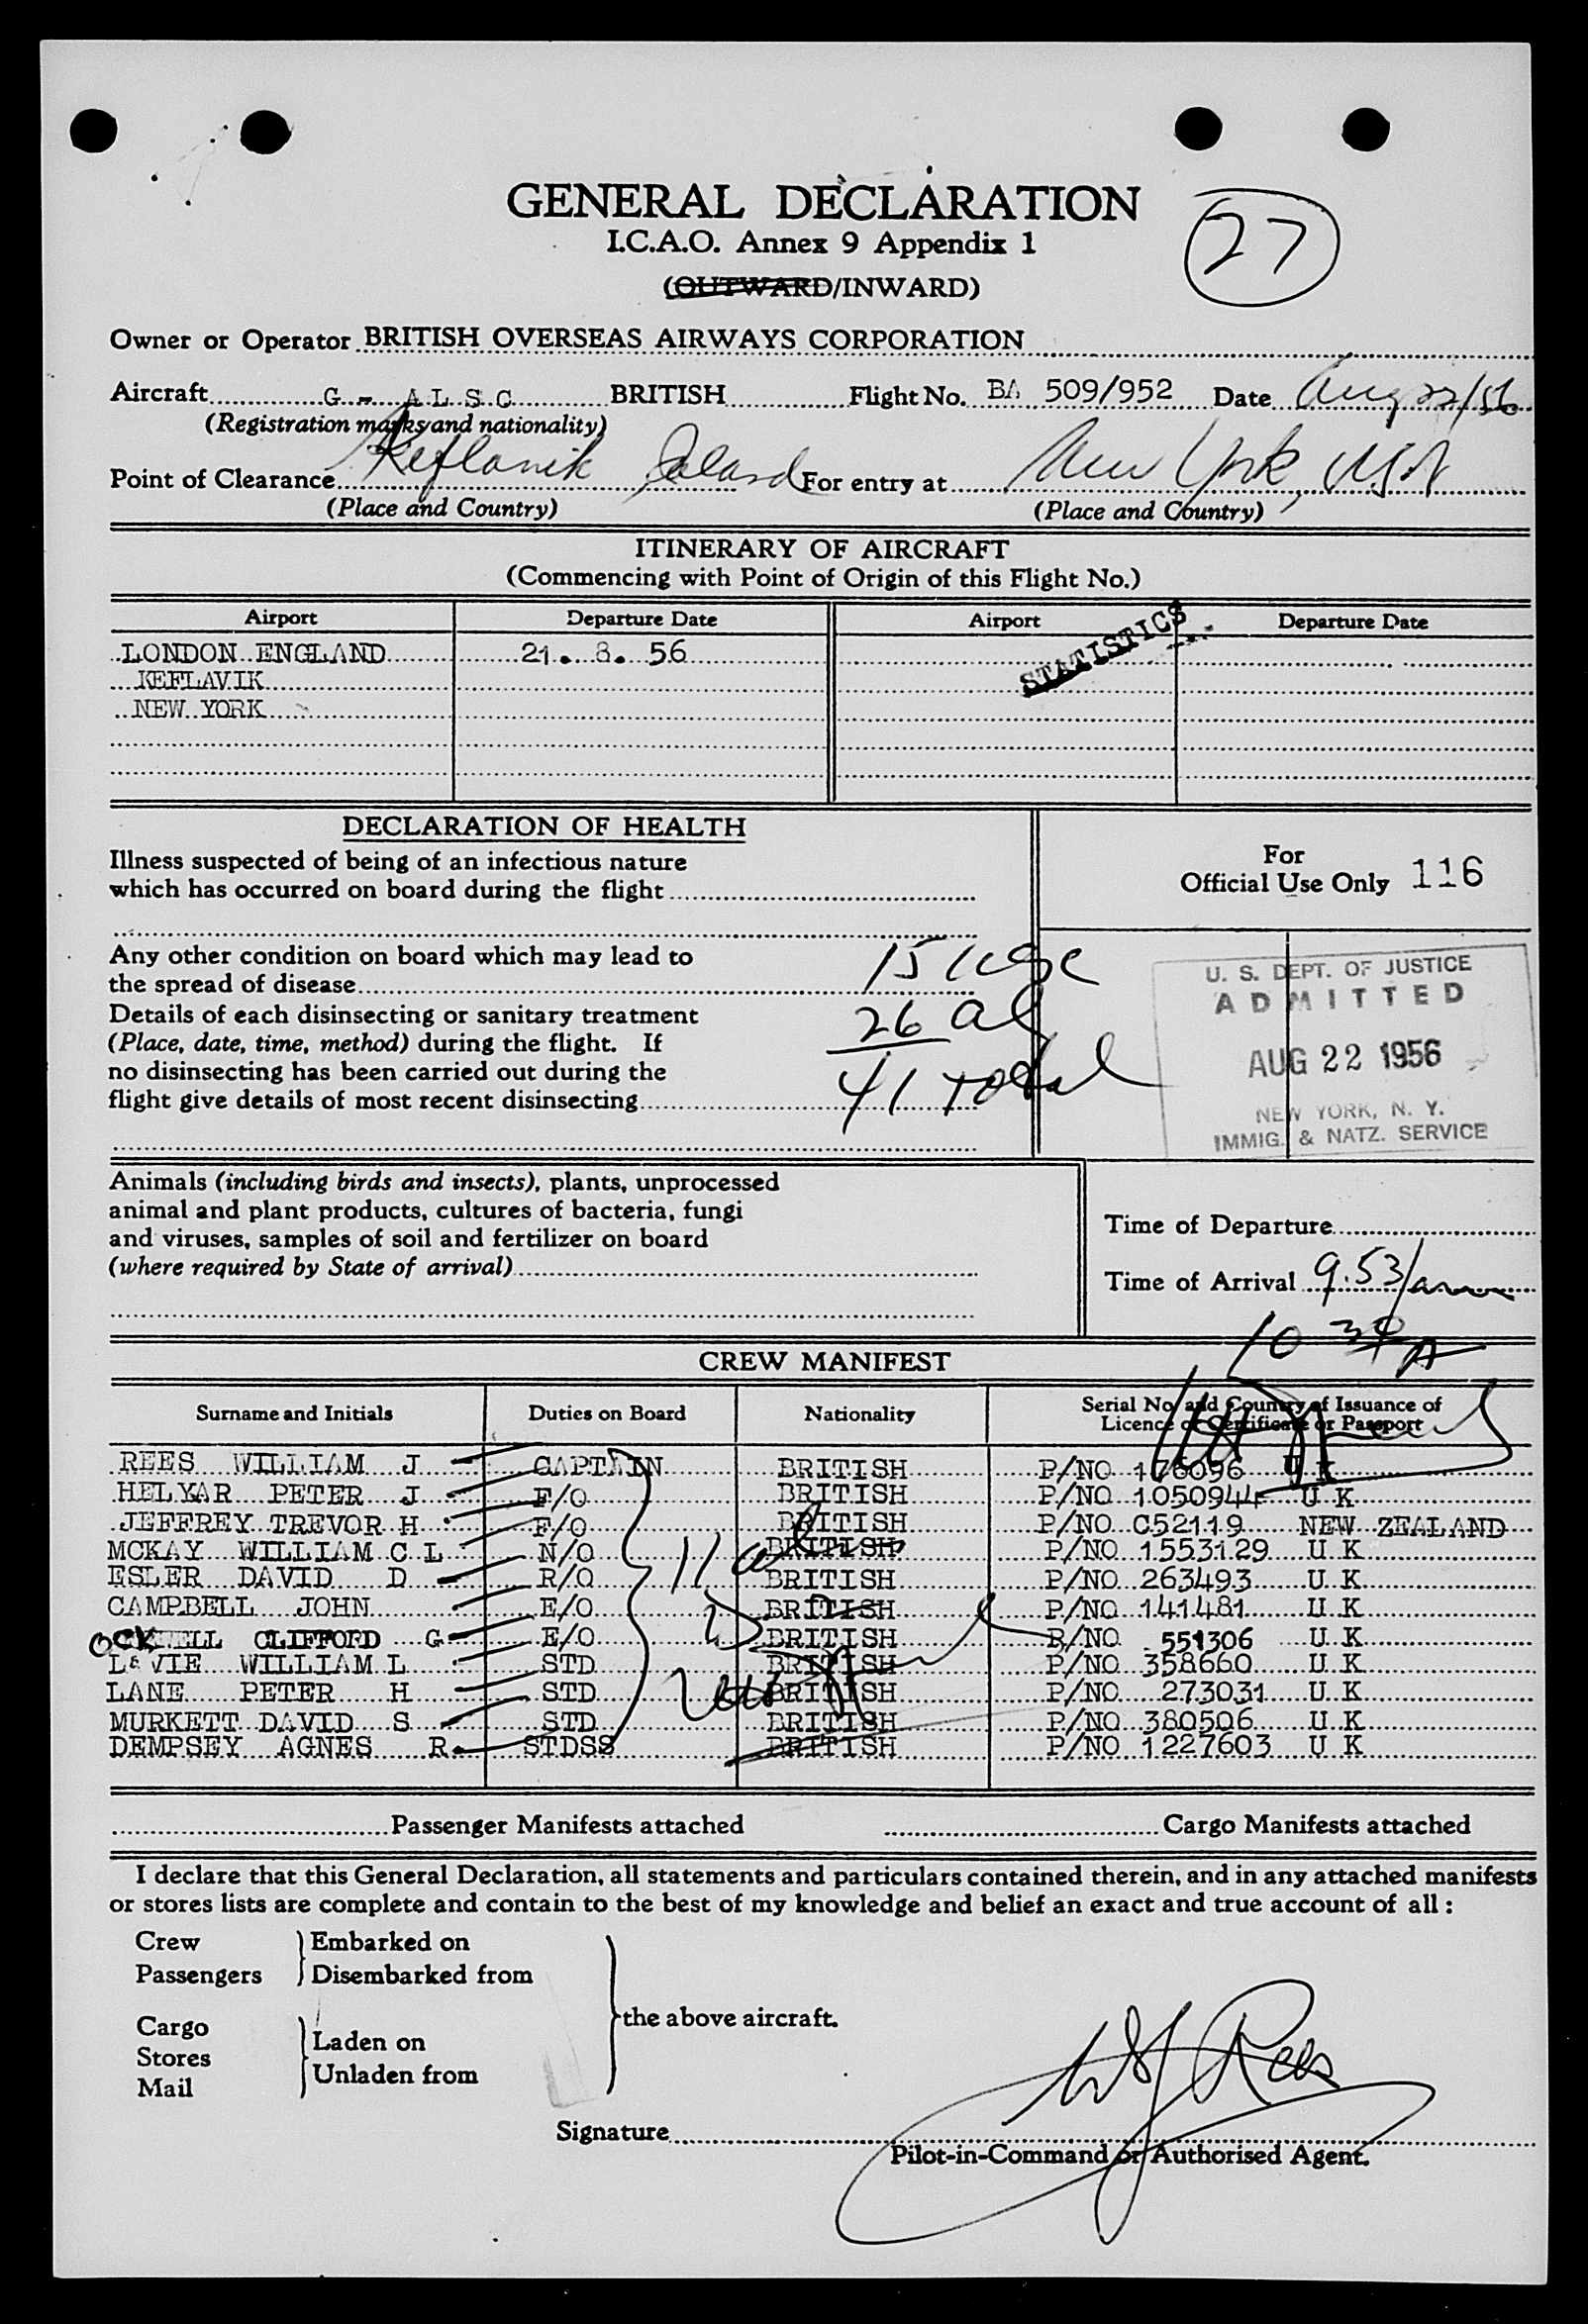 GENERAL DECLARATION
27
I.C.A.O. Annex 9 Appendix 1
(OUTWARD/INWARD)
Owner or Operator BRITISH OVERSEAS AIRWAYS CORPORATION
Aircraft G - A L S C BRITISH Flight No. BA 509/952 Date Aug 22/56
(Registration marks and nationality)
Point of Clearance Keflavik Iceland For entry at New York, USA
(Place and Country) (Place and Country)
ITINERARY OF AIRCRAFT
(Commencing with Point of Origin of this Flight No.)
Airport Departure Date Airport Departure Date
STATISTICS
LONDON ENGLAND 21. 8. 56
KEFLAVIK
NEW YORK
DECLARATION OF HEALTH
Illness suspected of being of an infectious nature
which has occurred on board during the flight
For
Official Use Only 116
Any other condition on board which may lead to
the spread of disease
15 usc
Details of each disinsecting or sanitary treatment
26 al
(Place, date, time, method) during the flight. If
no disinsecting has been carried out during the
flight give details of most recent disinsecting
41 total
U. S. DEPT. OF JUSTICE
ADMITTED
AUG 22 1956
NEW YORK, N. Y.
IMMIG. & NATZ. SERVICE
Animals (including birds and insects), plants, unprocessed
animal and plant products, cultures of bacteria, fungi
and viruses, samples of soil and fertilizer on board
(where required by State of arrival)
Time of Departure
Time of Arrival 9.53/am
10 34 A
CREW MANIFEST
Surname and Initials Duties on Board Nationality Serial No and Country of Issuance of Licence or Certificate or Passport
REES WILLIAM J CAPTAIN BRITISH P/NO 176096 U K
HELYAR PETER J F/O BRITISH P/NO 1050944 U K
JEFFREY TREVOR H F/O BRITISH P/NO C52119 NEW ZEALAND
MCKAY WILLIAM C L N/O BRITISH P/NO 1553129 U K
ESLER DAVID D R/O BRITISH P/NO 263493 U K
CAMPBELL JOHN E/O BRITISH P/NO 141481 U K
OCKWELL CLIFFORD G E/O BRITISH B/NO 551306 U K
LAVIE WILLIAM L STD BRITISH P/NO 358660 U K
LANE PETER H STD BRITISH P/NO 273031 U K
MURKETT DAVID S STD BRITISH P/NO 380506 U K
DEMPSEY AGNES R STDSS BRITISH P/NO 1227603 U K
11 al
Passenger Manifests attached Cargo Manifests attached
I declare that this General Declaration, all statements and particulars contained therein, and in any attached manifests
or stores lists are complete and contain to the best of my knowledge and belief an exact and true account of all :
Crew Embarked on
Passengers Disembarked from
the above aircraft.
Cargo
Stores
Mail
Laden on
Unladen from
WJ Rees
Signature
Pilot-in-Command or Authorised Agent.